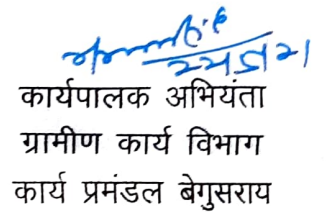 कार्यपालक अभियंता
ग्रामीण कार्य विभाग
कार्य प्रमंडल बेगुसराय